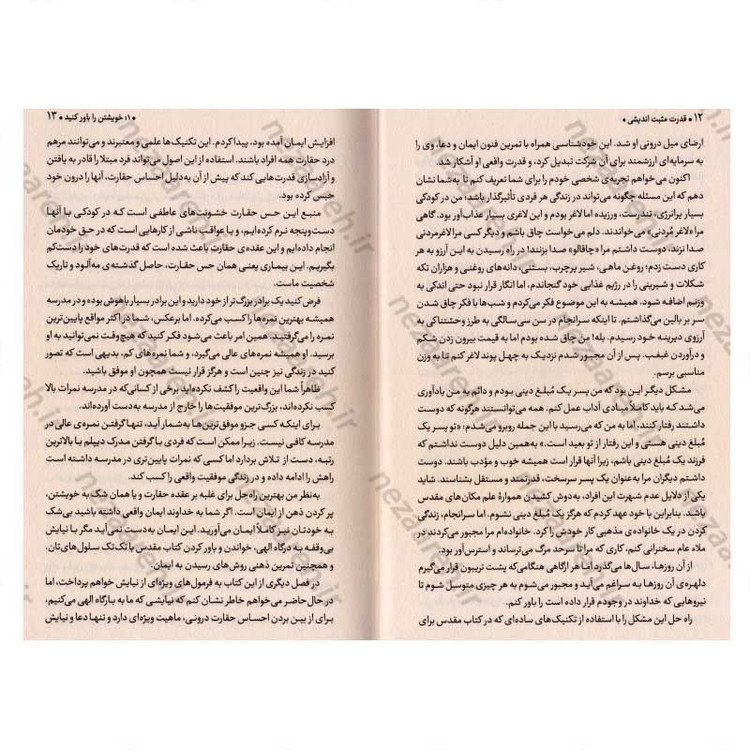 ۱۲ • قدرت مثبت اندیشی •
ارضای میل درونی او شد. این خودشناسی همراه با تمرین فنون ایمان و دعا، وی را
به سرمایه‌ای ارزشمند برای آن شرکت تبدیل کرد، و قدرت واقعی او آشکار شد.
اکنون می‌خواهم تجربه‌ی شخصی خودم را برای شما تعریف کنم تا به‌شما نشان
دهم که این مسئله چگونه می‌تواند در زندگی هر فردی تأثیرگذار باشد؛ من در کودکی
بسیار پرانرژی، تندرست، ورزیده اما لاغر بودم و این لاغری بسیار عذاب‌آور بود. گاهی
مرا «لاغر مُردنی» می‌خواندند. دلم می‌خواست چاق باشم و دیگر کسی مرا لاغرمردنی
صدا نزند، دوست داشتم مرا «چاقالو» صدا بزنند! در راه رسیدن به این آرزو به هر
کاری دست زدم؛ روغن ماهی، شیر پرچرب، بستنی، دانه‌های روغنی و هزاران تکه
شکلات و شیرینی را در رژیم غذایی خود گنجاندم، اما انگار قرار نبود حتی اندکی به
وزنم اضافه شود. همیشه به این موضوع فکر می‌کردم و شب‌ها با فکر چاق شدن
سر بر بالین می‌گذاشتم. تا اینکه سرانجام در سن سی‌سالگی به طرز وحشتناکی به
آرزوی دیرینه خود رسیدم. بله! من چاق شده بودم اما به قیمت بیرون زدن شکم
و درآوردن غبغب. پس از آن مجبور شدم نزدیک به چهل پوند لاغر کنم تا به وزن
مناسبی برسم.
مشکل دیگر این بود که من پسر یک مُبلغ دینی بودم و دائم به من یادآوری
می‌شد که باید کاملاً مبادی آداب عمل کنم. همه می‌توانستند هرگونه که دوست
داشتند رفتار کنند، اما به من که می‌رسید با این جمله روبرو می‌شدم، «تو پسر یک
مُبلغ دینی هستی و این رفتار از تو بعید است.» به‌همین دلیل دوست نداشتم که
فرزند یک مُبلغ دینی باشم، زیرا آنها قرار است همیشه خوب و مؤدب باشند. دوست
داشتم دیگران مرا به‌عنوان یک پسر سرسخت، قدرتمند و مستقل بشناسند. شاید
یکی از دلایل عدم شهرت این افراد، به‌دوش کشیدن همواره‌ی علم مکان‌های مقدس
باشد. بنابراین با خود عهد کردم که هرگز یک مُبلغ دینی نشوم. اما سرانجام، زندگی
کردن در یک خانواده‌ی مذهبی کار خودش را کرد. خانواده‌ام مرا مجبور می‌کردند در
ملاء عام سخنرانی کنم، کاری که مرا تا سرحد مرگ می‌ترساند و استرس‌آور بود.
از آن روزها، سال‌ها می‌گذرد اما هر ازگاهی هنگامی‌که پشت تریبون قرار می‌گیرم
دلهره‌ی آن روزها به سراغم می‌آید و مجبور می‌شوم به هر چیزی متوسل شوم تا
نیروهایی که خداوند در وجودم قرار داده است را باور کنم.
راه حل این مشکل را با استفاده از تکنیک‌های ساده‌ای که در کتاب مقدس برای
• ۱: خویشتن را باور کنید • ۱۳
افزایش ایمان آمده بود، پیدا کردم. این تکنیک‌ها علمی و معتبرند و می‌توانند مرهم
درد حقارت همه افراد باشند. استفاده از این اصول می‌تواند فرد مبتلا را قادر به یافتن
و آزادسازی قدرت‌هایی کند که پیش از آن به‌دلیل احساس حقارت، آنها را درون خود
حبس کرده بود.
منبع این حس حقارت خشونت‌های عاطفی است که در کودکی با آنها
دست‌وپنجه نرم کرده‌ایم، و یا عواقب ناشی از کارهایی است که در حق خودمان
انجام داده‌ایم و این عقده‌ی حقارت باعث شده است که قدرت‌های خود را دست‌کم
بگیریم. این بیماری یعنی همان حس حقارت، حاصل گذشته‌ی مه‌آلود و تاریک
شخصیت ماست.
فرض کنید یک برادر بزرگ‌تر از خود دارید و این برادر بسیار باهوش بوده و در مدرسه
همیشه بهترین نمره‌ها را کسب می‌کرده. اما برعکس، شما در اکثر مواقع پایین‌ترین
نمره را می‌گرفتید. همین امر باعث می‌شود فکر کنید که هیچ‌وقت نمی‌توانید به او
برسید. او همیشه نمره‌های عالی می‌گیرد، و شما نمره‌های کم، بدیهی است که تصور
کنید در زندگی نیز چنین است و هرگز قرار نیست همچون او موفق باشید.
ظاهراً شما این واقعیت را کشف نکرده‌اید برخی از کسانی‌که در مدرسه نمرات بالا
کسب نکرده‌اند، بزرگ‌ترین موفقیت‌ها را خارج از مدرسه به‌دست آورده‌اند.
برای اینکه کسی جزو موفق‌ترین‌ها به‌شمار آید، تنها گرفتن نمره‌ی عالی در
مدرسه کافی نیست. زیرا ممکن است که فردی با گرفتن مدرک دیپلم با بالاترین
رتبه، دست از تلاش بردارد اما کسی که نمرات پایین‌تری در مدرسه داشته است
راهش را ادامه داده و در زندگی موفقیت واقعی را کسب کند.
به‌نظر من بهترین راه حل برای غلبه بر عقده حقارت و یا همان شک به خویشتن،
پر کردن ذهن از ایمان است. اگر شما به خداوند ایمان واقعی داشته باشید بی‌شک
به خودتان نیز کاملاً ایمان می‌آورید. این ایمان به‌دست نمی‌آید مگر با نیایش
بی‌وقفه به درگاه الهی، خواندن و باور کردن کتاب مقدس با تک‌تک سلول‌های‌تان،
و همچنین تمرین ذهنی روش‌های رسیدن به ایمان.
در فصل دیگری از این کتاب به فرمول‌های ویژه‌ای از نیایش خواهم پرداخت، اما
در حال‌حاضر می‌خواهم خاطر نشان کنم که نیایشی که ما به بارگاه الهی می‌کنیم،
برای از بین بردن احساس حقارت درونی، ماهیت ویژه‌ای دارد و تنها دعا و نیایش
nezaareh.ir